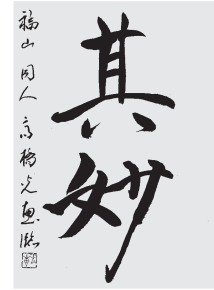 其妙
福山同人高橋光恵臨